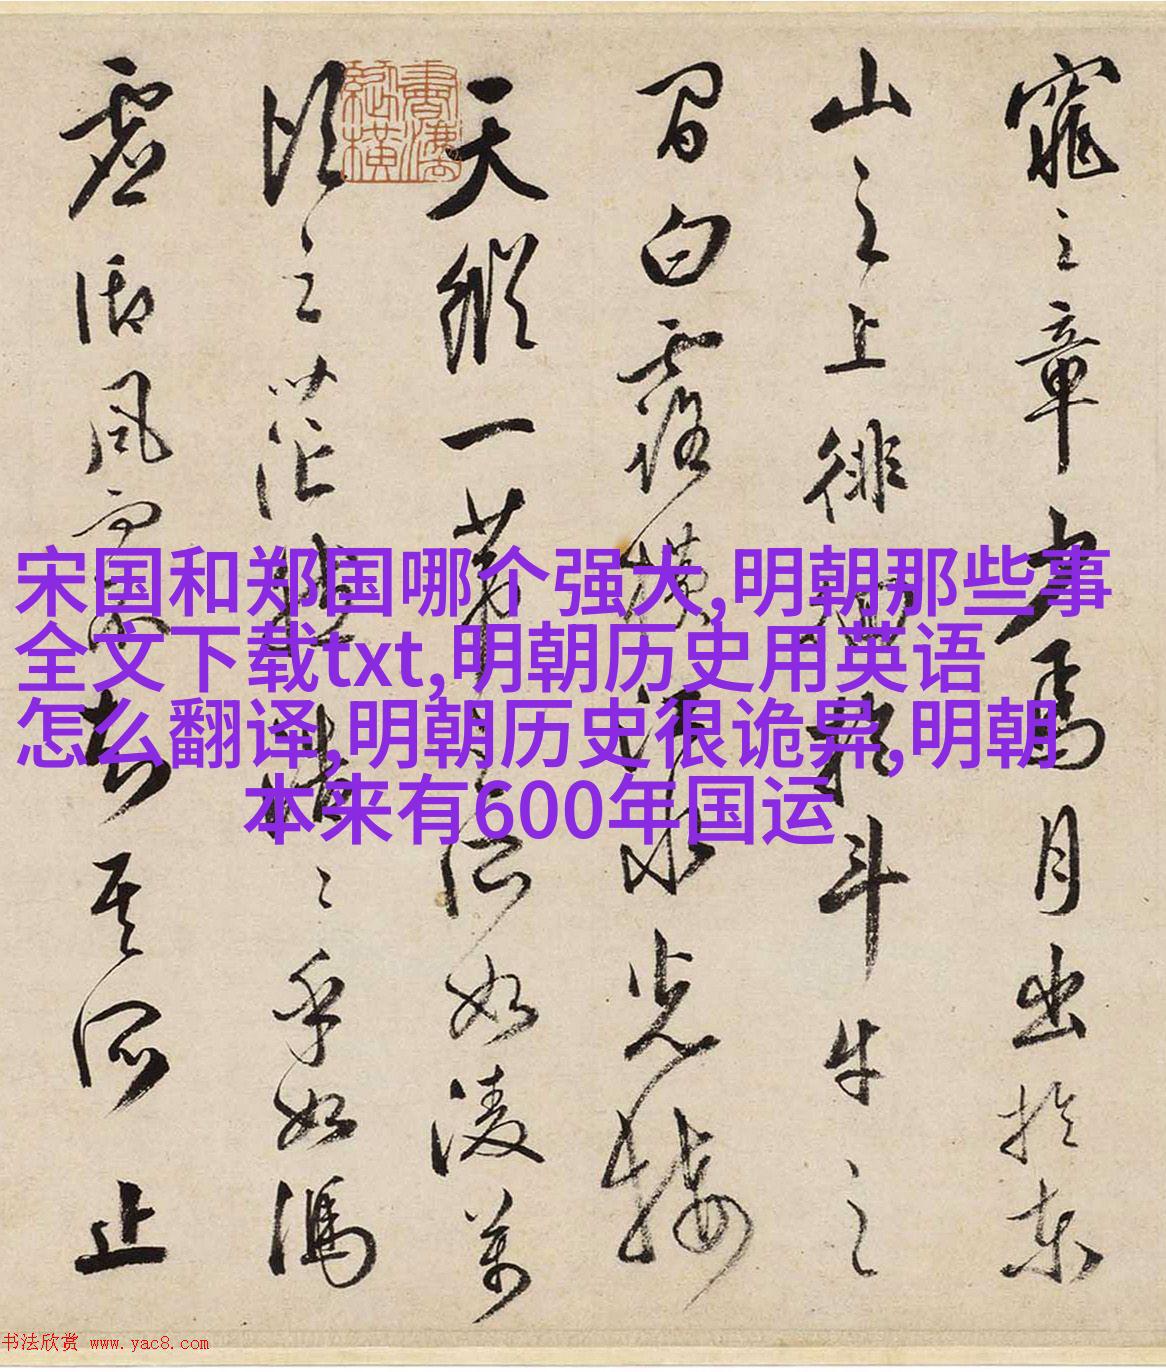 窕之章少焉月出於東
山之上徘徊於斗牛之
間白露横江水光接
天縱一葦之所如凌萬
頃之茫然浩浩乎如馮
虚御風而不知其所止
宋国和郑国哪个强大,明朝那些事
全文下载txt,明朝历史用英语
怎么翻译,明朝历史很诡异,明朝
本来有600年国运
书法欣赏 www.yac8.com